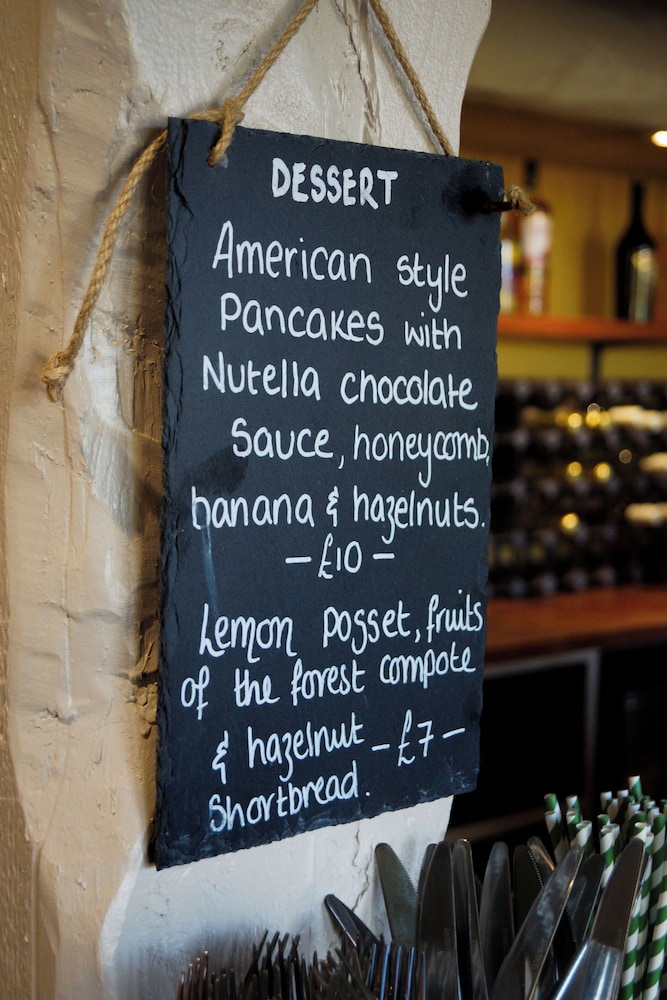 DESSERT
American style
Pancakes with
Nutella chocolate
Sauce, honeycomb,
banana & hazelnuts.
- £10 -
Lemon Posset, fruits
of the forest compote
& hazelnut - £7 -
Shortbread.